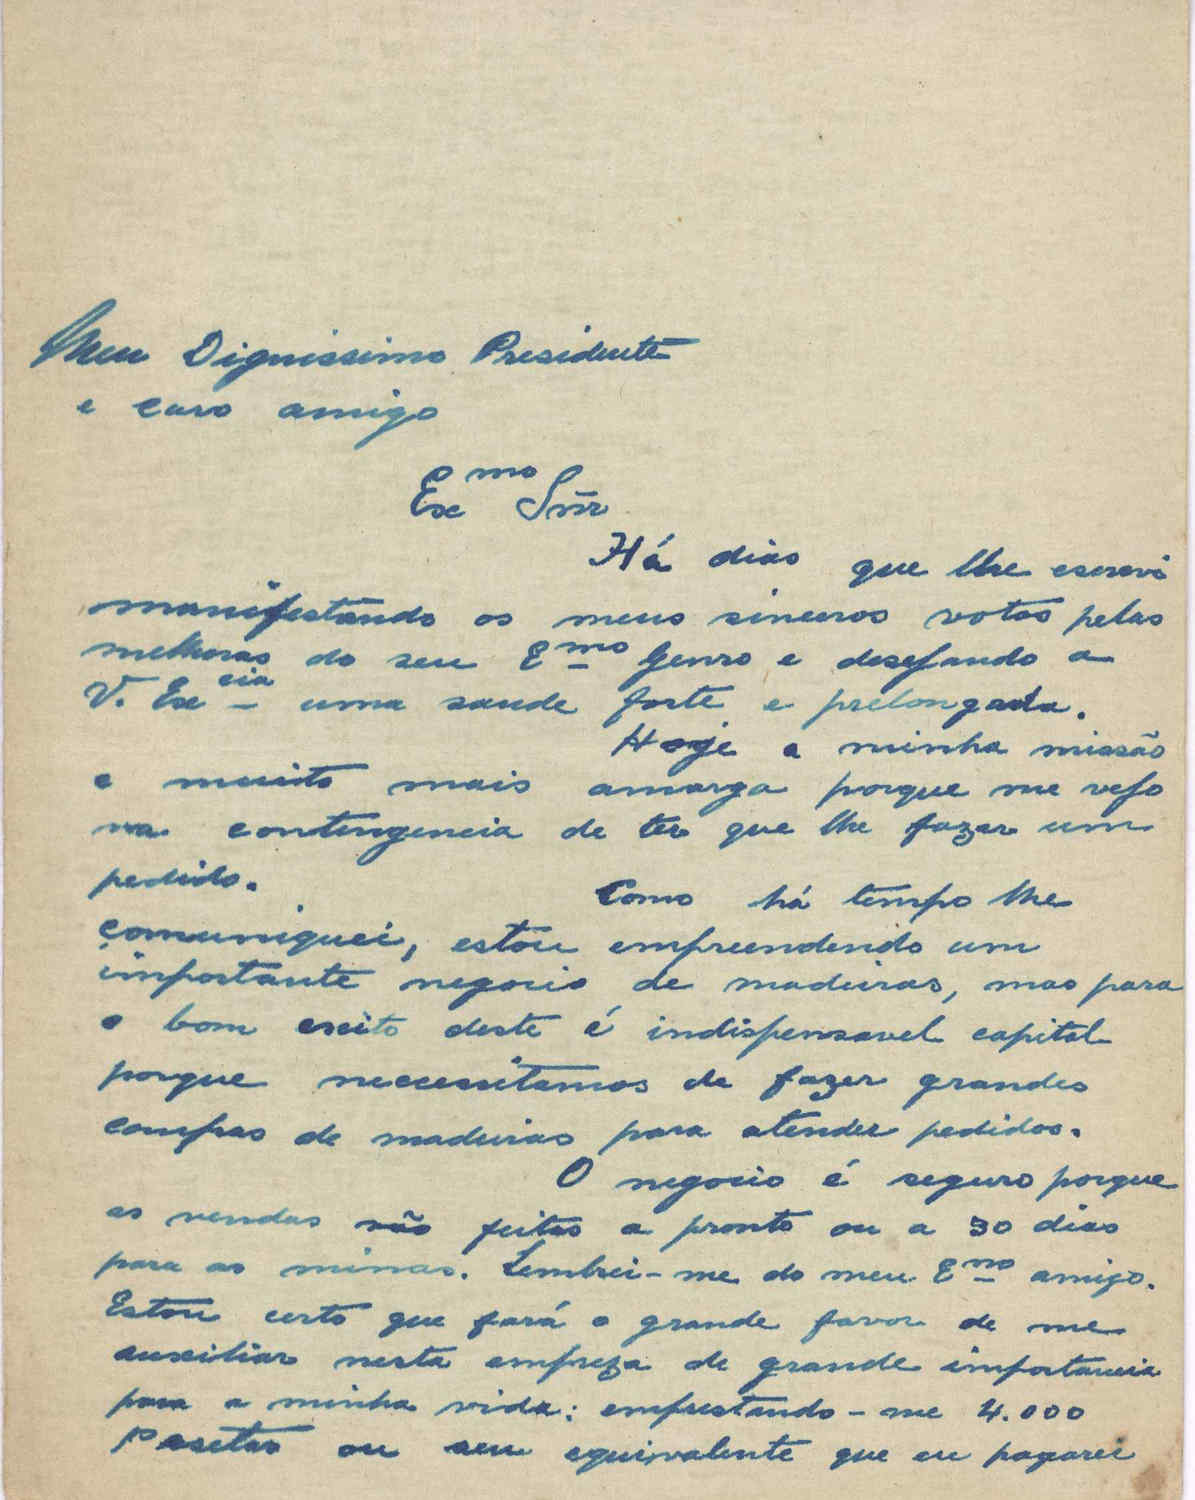 Meu Dignissimo Presidente
e caro amigo
Exmo Sñr
Há dias que lhe escrevi
manifestando os meus sinceros votos pelas
melhoras do seu Emo Genro e desejando a
V. Excia uma saude forte e prolongada.
Hoje a minha missão
e muito mais amarga porque me vejo
na contingencia de ter que lhe fazer um
pedido.
Como há tempo lhe
comuniquei, estou empreendendo um
importante negocio de madeiras, mas para
o bom exito deste é indispensavel capital
porque necessitamos de fazer grandes
compras de madeiras para atender pedidos.
O negocio é seguro porque
as vendas são feitas a pronto ou a 30 dias
para as minas. Lembrei-me do meu Emo amigo.
Estou certo que fará o grande favor de me
auxiliar nesta empreza de grande importancia
para a minha vida: emprestando-me 4.000
Pesetas ou seu equivalente que eu pagarei